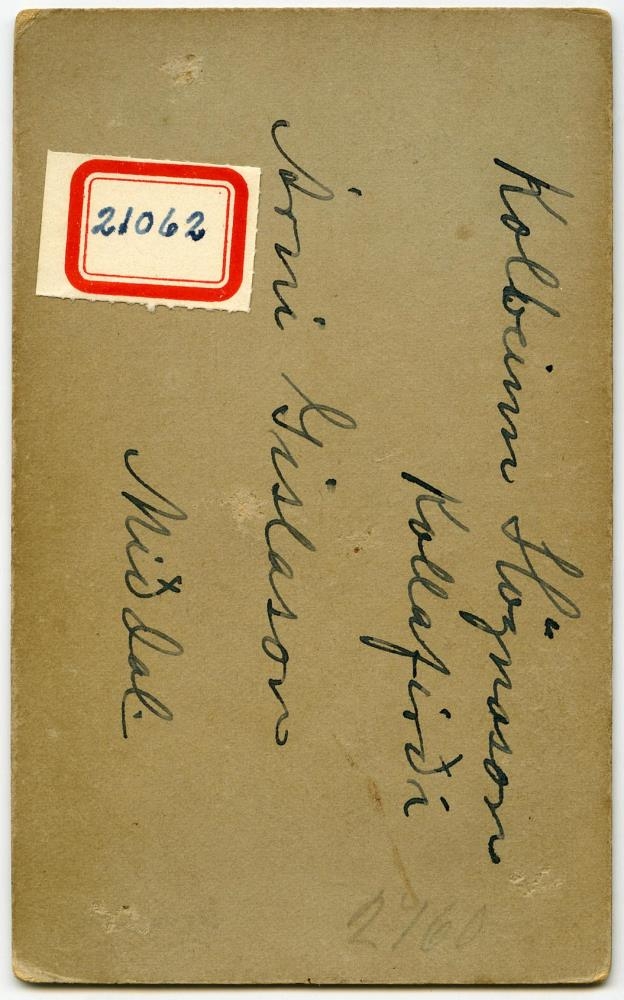 Kolbeinn Högnason
Kollafirði
Árni Gíslason
Miðdal.
21062
2760